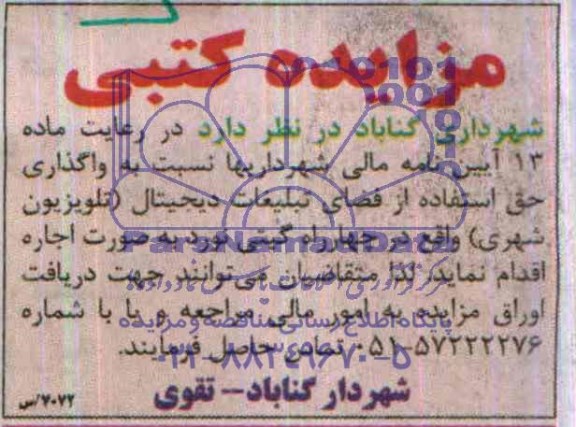 مزایده کتبی
شهرداری گناباد در نظر دارد در رعایت ماده
۱۳ آیین نامه مالی شهرداریها نسبت به واگذاری
حق استفاده از فضای تبلیغات دیجیتال (تلویزیون
شهری) واقع در چهارراه گیتی نورد به صورت اجاره
اقدام نماید. لذا متقاضیان می‌توانند جهت دریافت
اوراق مزایده به امور مالی مراجعه و یا با شماره
۵۷۲۲۲۲۷۶-۰۵۱ تماس حاصل فرمایند.
شهردار گناباد – تقوی
۷۰۷۲/س
پایگاه اطلاع رسانی مناقصه و مزایده
۰۲۱-۸۸۳۴۹۶۷۰-۵